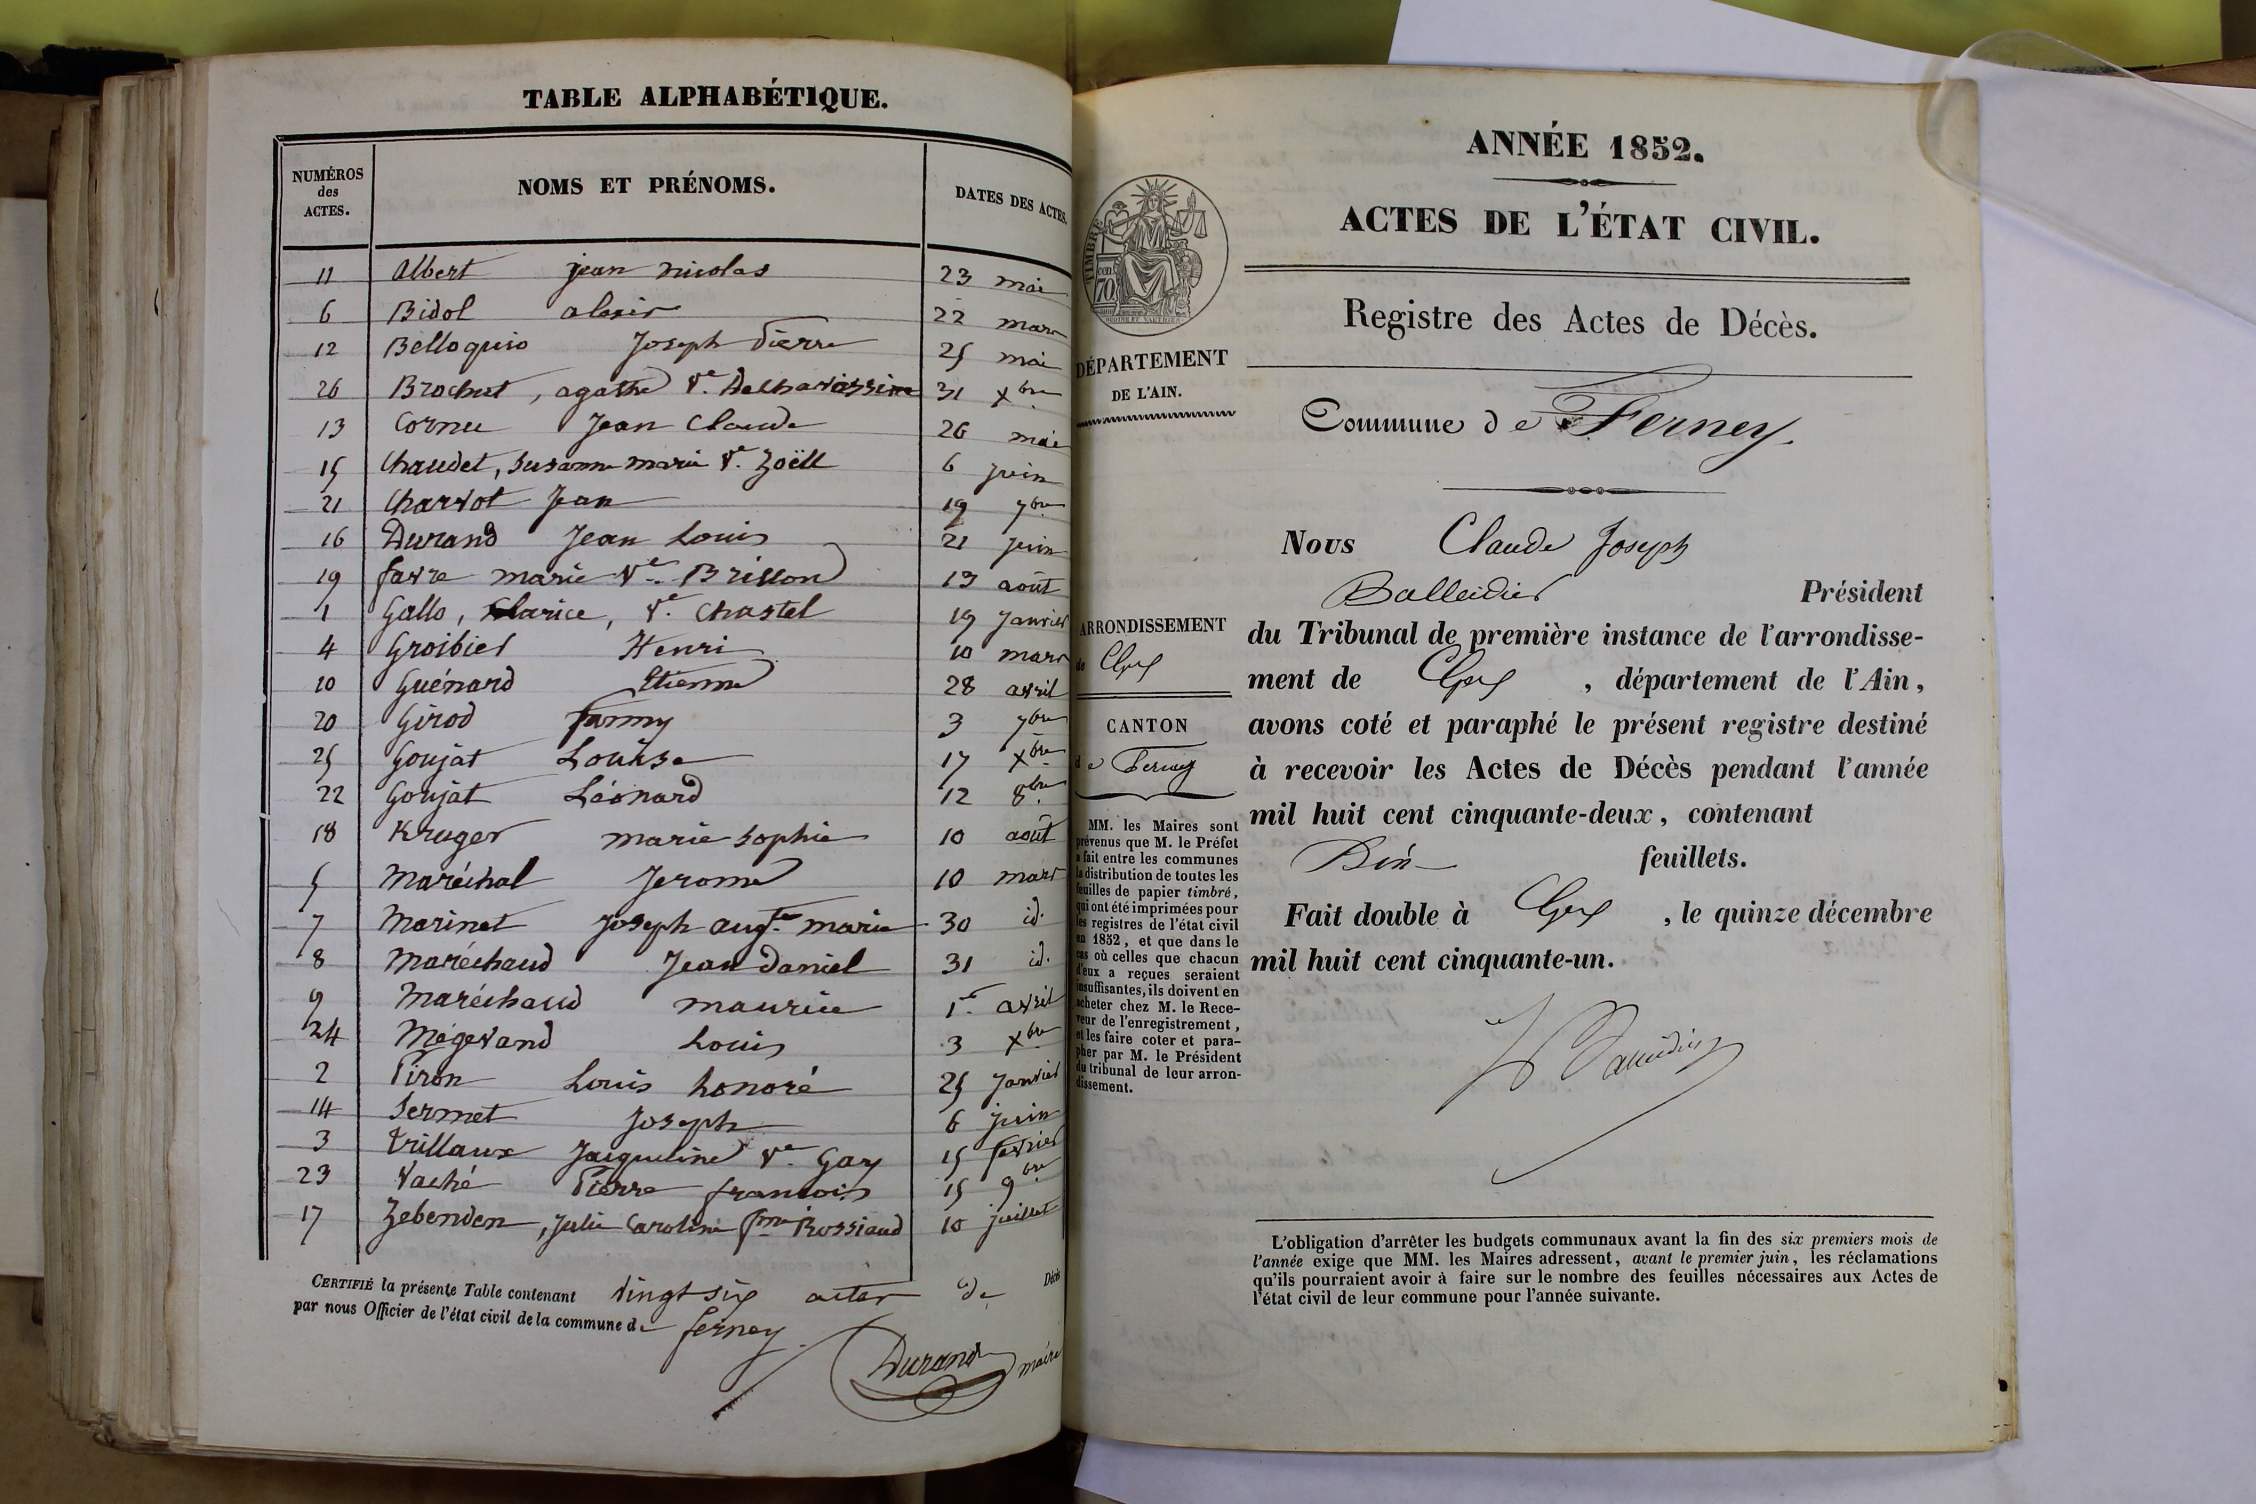 TABLE ALPHABÉTIQUE.
NUMÉROS des ACTES. NOMS ET PRÉNOMS. DATES DES ACTES.
11 Albert jean nicolas 23 mai
6 Bidol alexis 22 mars
12 Belloquio Joseph Pierre 25 mai
26 Brochut, agathe Ve. Delhavassine 31 Xbre
13 Cornu Jean Claude 26 mai
15 Chaudet, Susanne marie Ve. Zoëll 6 juin
21 Charvot Jean 19 7bre
16 Durand Jean Louis 21 juin
19 favre marie Ve. Brillon 13 août
1 Gallo, Clarice, Ve. Chastel 19 Janvier
4 Groibier Henri 10 mars
10 Guénard Etienne 28 avril
20 Girod fanny 3 7bre
25 Goujat Louise 17 Xbre
22 Goujat Léonard 12 8bre
18 Kruger marie Sophie 10 août
5 Maréchal Jerome 10 mars
7 Marinet Joseph augte. marie 30 id.
8 Maréchaud Jean Daniel 31 id.
9 Maréchaud maurice 1er avril
24 Mégevand Louis 3 Xbre
2 Piron Louis honoré 25 Janvier
14 Sermet Joseph 6 juin
3 Trillaux Jacqueline Ve. Gay 15 fevrier
23 Vaché Pierre francois 15 9bre
17 Zebenden, Julie Caroline fme. Rossiaud 10 juillet
CERTIFIÉ la présente Table contenant vingt six actes de Décès
par nous Officier de l'état civil de la commune de ferney.
Durand maire
ANNÉE 1852.
ACTES DE L'ÉTAT CIVIL.
Registre des Actes de Décès.
Commune de Ferney.
TIMBRE
cen.
70
DÉPARTEMENT
DE L'AIN.
ARRONDISSEMENT
de Gex
CANTON
de Ferney
MM. les Maires sont
prévenus que M. le Préfet
a fait entre les communes
la distribution de toutes les
feuilles de papier timbré,
qui ont été imprimées pour
les registres de l'état civil
en 1852, et que dans le
cas où celles que chacun
d'eux a reçues seraient
insuffisantes, ils doivent en
acheter chez M. le Rece-
veur de l'enregistrement,
et les faire coter et para-
pher par M. le Président
du tribunal de leur arron-
dissement.
Nous Claude Joseph
Balleidier Président
du Tribunal de première instance de l'arrondisse-
ment de Gex, département de l'Ain,
avons coté et paraphé le présent registre destiné
à recevoir les Actes de Décès pendant l'année
mil huit cent cinquante-deux, contenant
feuillets.
Fait double à Gex, le quinze décembre
mil huit cent cinquante-un.
L'obligation d'arrêter les budgets communaux avant la fin des six premiers mois de
l'année exige que MM. les Maires adressent, avant le premier juin, les réclamations
qu'ils pourraient avoir à faire sur le nombre des feuilles nécessaires aux Actes de
l'état civil de leur commune pour l'année suivante.